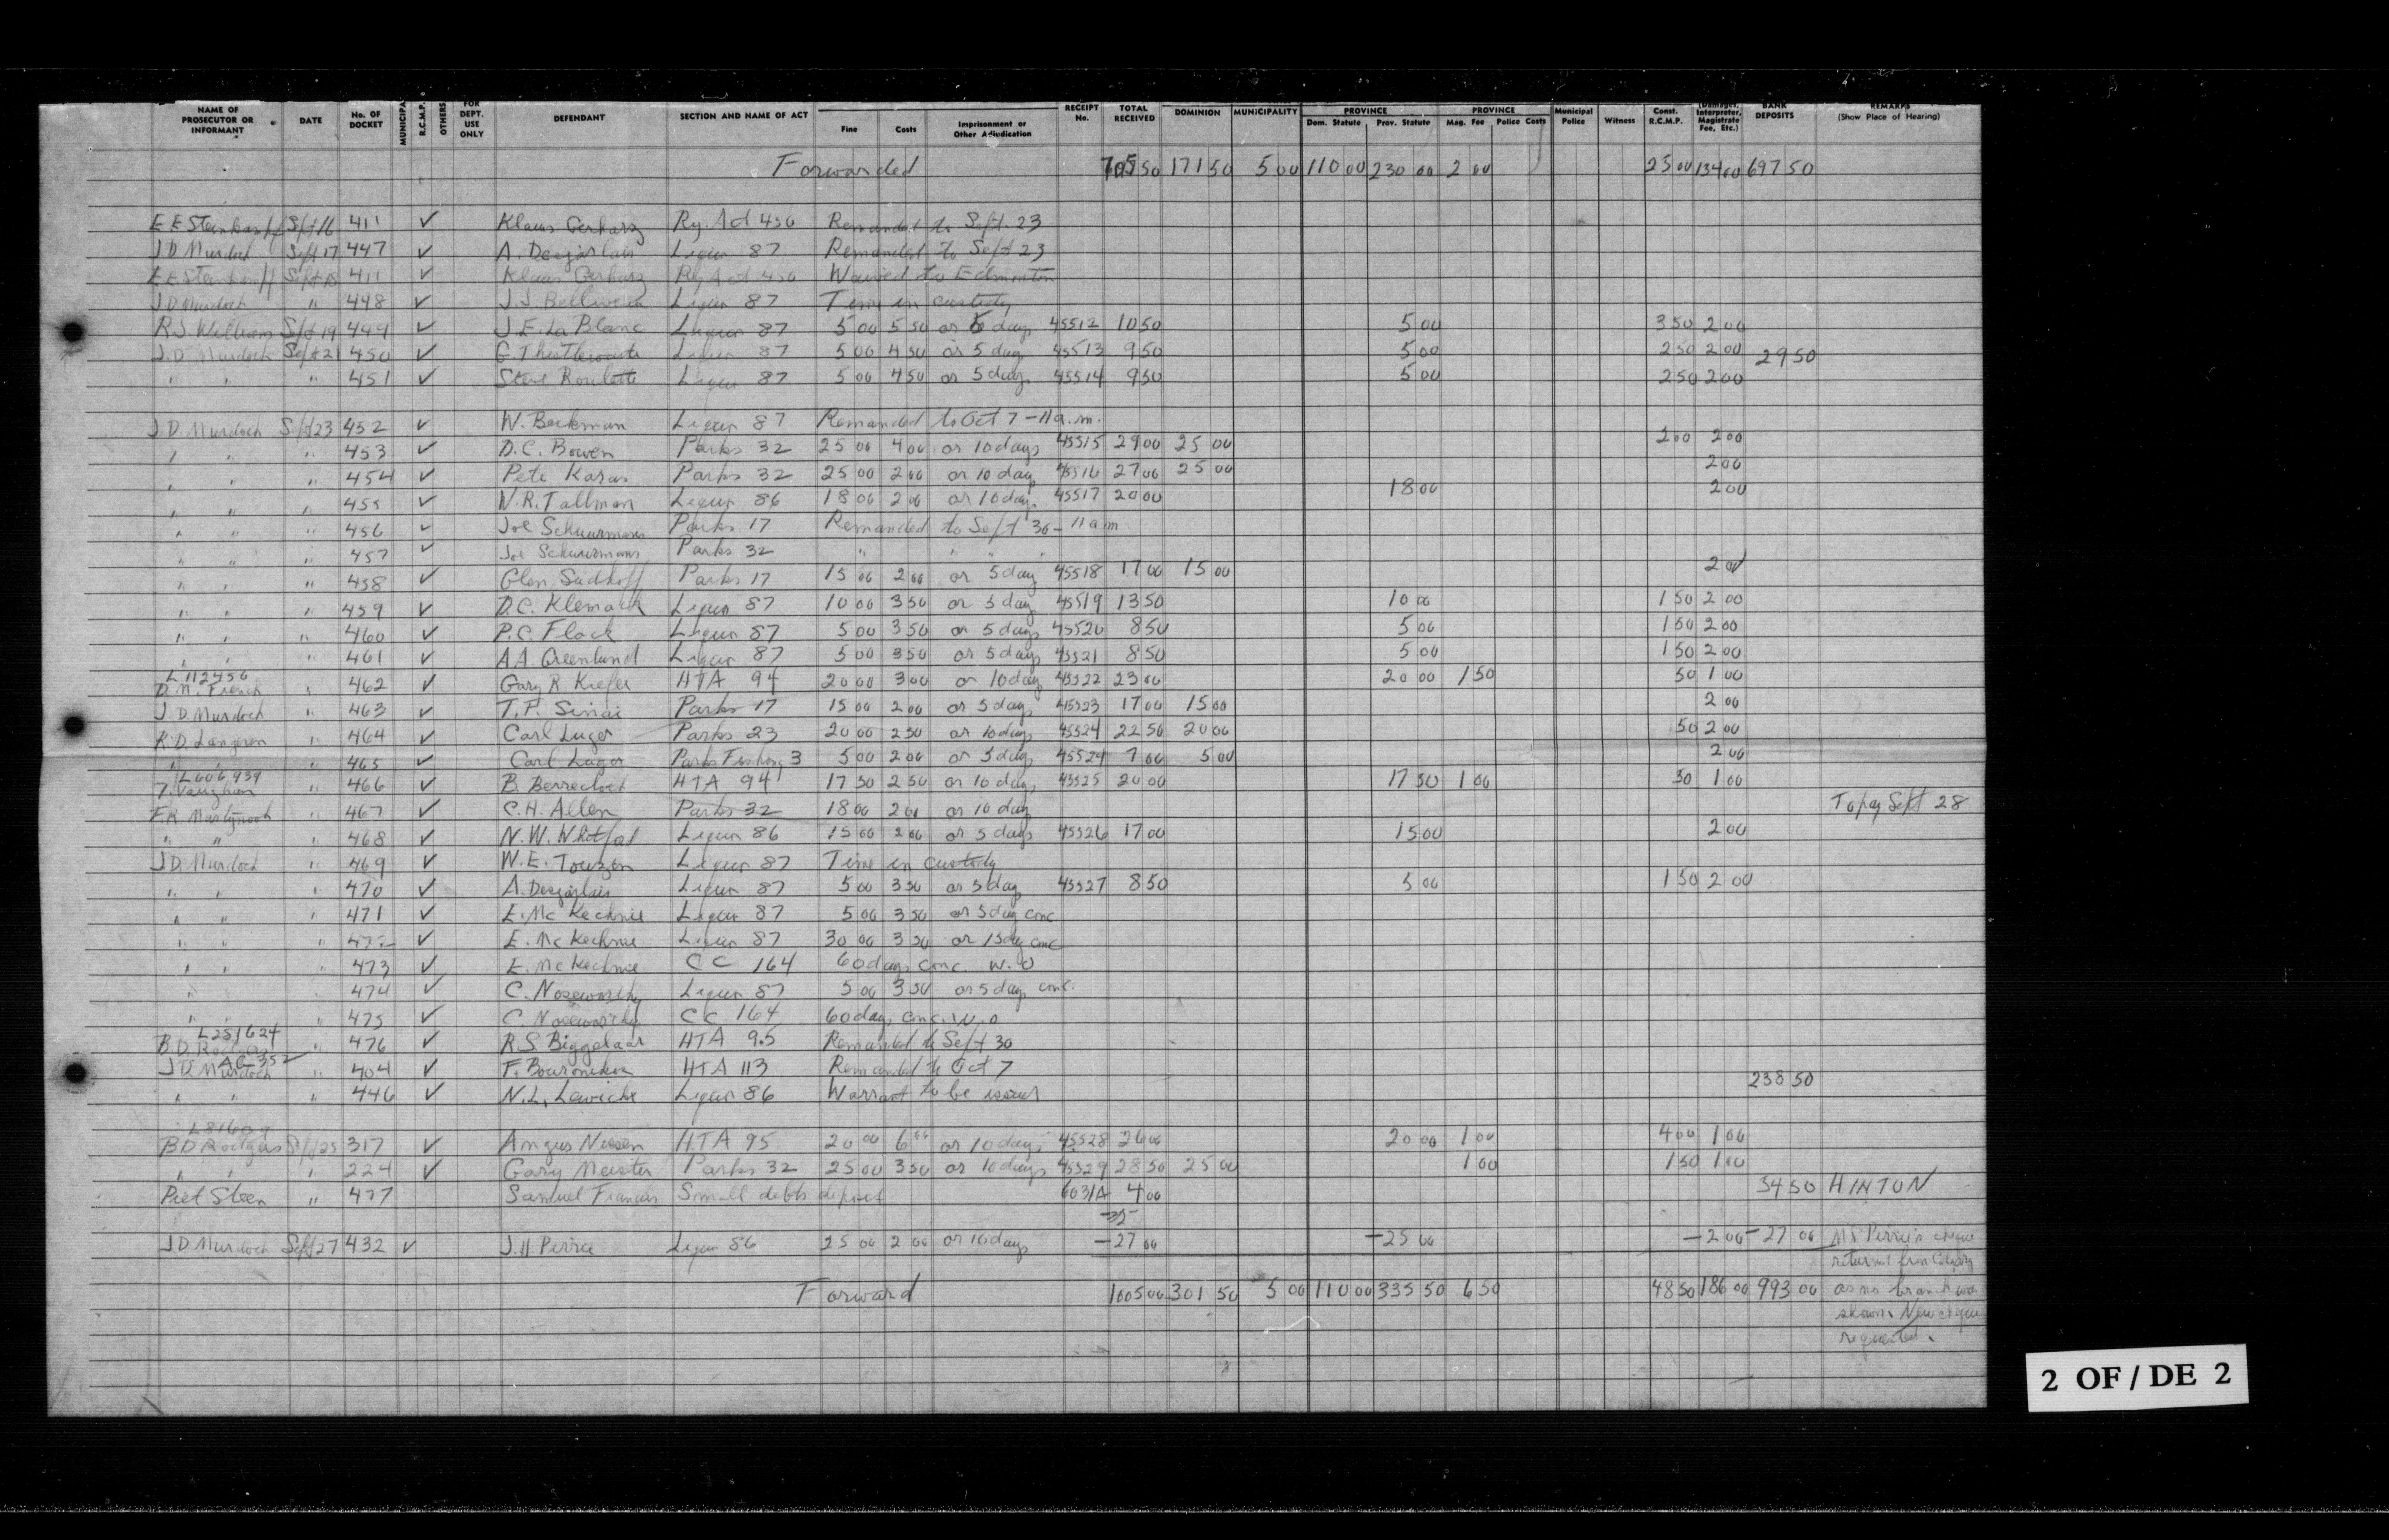 NAME OF PROSECUTOR OR INFORMANT DATE No. OF DOCKET MUNICIPAL R.C.M.P. OTHERS FOR DEPT. USE ONLY DEFENDANT SECTION AND NAME OF ACT Fine Costs Imprisonment or Other Adjudication RECEIPT No. TOTAL RECEIVED DOMINION MUNICIPALITY PROVINCE Dom. Statute Prov. Statute PROVINCE Mag. Fee Police Costs Municipal Police Witness Const. R.C.M.P. (Damages, Interpreter, Magistrate Fee, Etc.) BANK DEPOSITS REMARKS (Show Place of Hearing)
Forwarded 705 50 171 50 5 00 110 00 230 00 2 00 25 00 134 00 697 50
Sept 16 411 ✓ Klaus Ry. Act 450 Remanded to Sept. 23
J.D. Murdoch Sept 17 447 ✓ A. Desjarlais Liquor 87 Remanded to Sept 23
411 ✓ Klaus Ry Act 450 Waived to Edmonton
J.D. Murdoch " 448 ✓ J.J. Liquor 87 Time in custody
R.J. Williams Sept 19 449 ✓ J.E. La Blanc Liquor 87 5 00 5 50 or 5 days 45512 10 50 5 00 3 50 2 00
J.D. Murdoch Sept 21 450 ✓ G. Liquor 87 5 00 4 50 or 5 days 45513 9 50 5 00 2 50 2 00 29 50
" " " 451 ✓ Steve Liquor 87 5 00 4 50 or 5 days 45514 9 50 5 00 2 50 2 00
J.D. Murdoch Sept 23 452 ✓ W. Beckman Liquor 87 Remanded to Oct 7 - 11 a.m.
" " 453 ✓ D.C. Bowen Parks 32 25 00 4 00 or 10 days 45515 29 00 25 00 2 00 2 00
" " " 454 ✓ Pete Karas Parks 32 25 00 2 00 or 10 days 45516 27 00 25 00 2 00
" " " 455 ✓ N.R. Tallman Liquor 86 18 00 2 00 or 10 days 45517 20 00 18 00 2 00
" " " 456 ✓ Joe Schuurmans Parks 17 Remanded to Sept 30 - 11 a m
" " " 457 ✓ Joe Schuurmans Parks 32 " " " "
" " " 458 ✓ Glen Sudhoff Parks 17 15 00 2 00 or 5 days 45518 17 00 15 00 2 00
" " " 459 ✓ D.C. Liquor 87 10 00 3 50 or 5 days 45519 13 50 10 00 1 50 2 00
" " " 460 ✓ P.C. Flack Liquor 87 5 00 3 50 or 5 days 45520 8 50 5 00 1 50 2 00
" " " 461 ✓ A.A. Greenlund Liquor 87 5 00 3 50 or 5 days 45521 8 50 5 00 1 50 2 00
L 112456
D.N. French " 462 ✓ Gary R Kiefer HTA 94 20 00 3 00 or 10 days 45522 23 00 20 00 1 50 50 1 00
J.D. Murdoch " 463 ✓ T.F. Sinai Parks 17 15 00 2 00 or 5 days 45523 17 00 15 00 2 00
R.D. Langeron " 464 ✓ Carl Luger Parks 23 20 00 2 50 or 10 days 45524 22 50 20 00 50 2 00
" " " 465 ✓ Carl Luger Parks Fishing 3 5 00 2 00 or 5 days 45524 7 00 5 00 2 00
L606939
T. Vaughan " 466 ✓ B. HTA 94 17 50 2 50 or 10 days 45525 20 00 17 50 1 00 50 1 00
" 467 ✓ C.H. Allen Parks 32 18 00 2 00 or 10 days To pay Sept 28
" " " 468 ✓ N.W. Liquor 86 15 00 2 00 or 5 days 45526 17 00 15 00 2 00
J.D. Murdoch " 469 ✓ W.E. Touzon Liquor 87 Time in custody
" " " 470 ✓ A. Desjarlais Liquor 87 5 00 3 50 or 5 days 45527 8 50 5 00 1 50 2 00
" " " 471 ✓ E. McKechnie Liquor 87 5 00 3 50 or 5 days conc
" " " ✓ E. McKechnie Liquor 87 30 00 3 50 or 15 days conc
" " " 473 ✓ E. McKechnie CC 164 60 days conc. W.O
" " " 474 ✓ C. Noseworthy Liquor 87 5 00 3 50 or 5 days conc.
" " " 475 ✓ C. Noseworthy CC 164 60 days conc. W.O
L251624
B.D. " 476 ✓ R.S. Biggelaar HTA 95 Remanded to Sept 30
AC352
J.D. Murdoch " 404 ✓ F. HTA 113 Remanded to Oct 7
238 50
" " " 446 ✓ N.L. Liquor 86 Warrant to be issued
L81609
B.D. Rodgers Sept 25 317 ✓ Angus HTA 95 20 00 6 00 or 10 days 45528 26 00 20 00 1 00 4 00 1 00
" " " 224 ✓ Gary Meister Parks 32 25 00 3 50 or 10 days 45529 28 50 25 00 1 00 1 50 1 00
Piet Steen " 477 Samuel Francis Small debts deposit 6031A 4 00 34 50 HINTON
J.D. Murdoch Sept 27 432 ✓ J.H Perrie Liquor 86 25 00 2 00 or 10 days -27 00 -25 00 -2 00 -27 00 Mr Perrie's cheque
returned from Calgary
Forward 1005 00 301 50 5 00 110 00 335 50 6 50 48 50 186 00 993 00 as no branch was
shown. New cheque
requested.
2 OF / DE 2